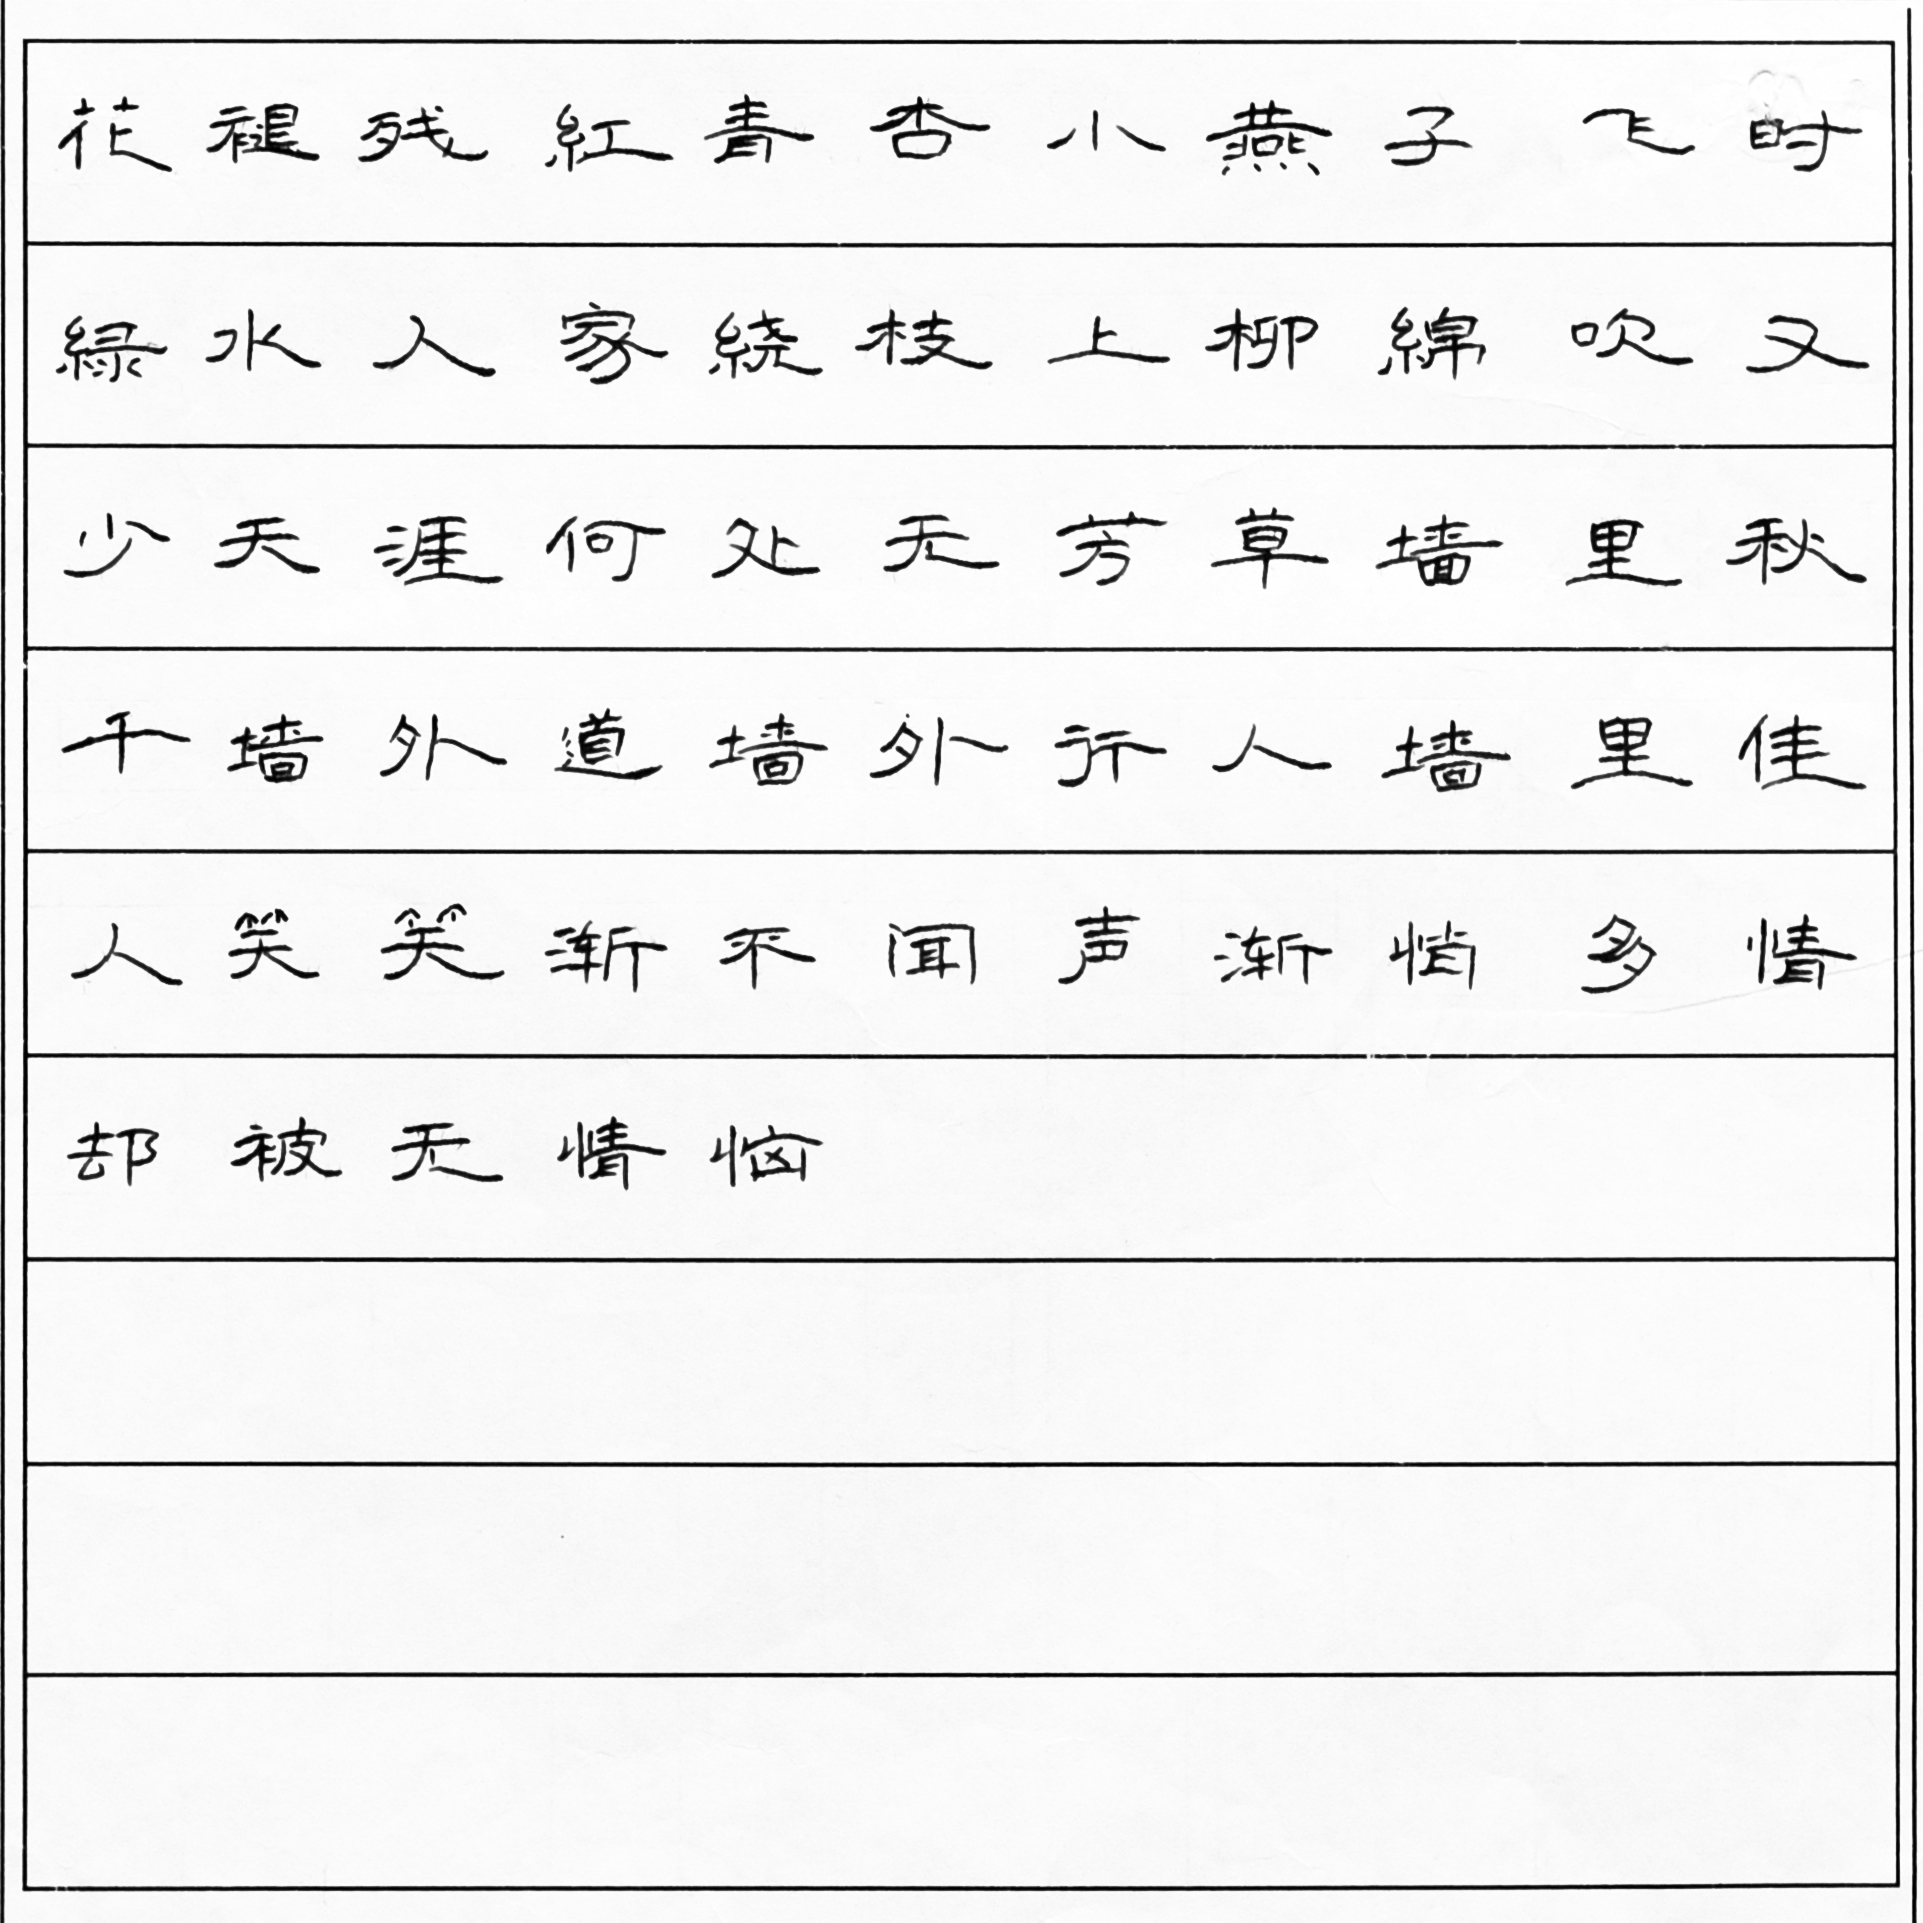 花褪残紅青杏小燕子飞时
緑水人家繞枝上柳綿吹又
少天涯何处无芳草墙里秋
千墙外道墙外行人墙里佳
人笑笑渐不闻声渐悄多情
却被无情恼